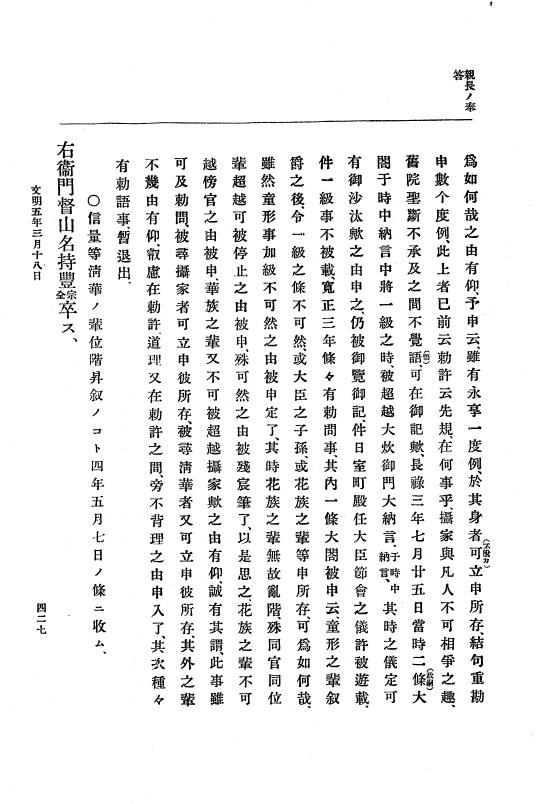 親長ノ奉
答
爲如何哉之由有仰、予申云、雖有永享一度例、於其身者可立申所存、結句重勘
申數个度例、此上者已前云勅許云先規、在何事乎、攝家與凡人不可相爭之趣、
舊院聖斷不承及之間不覺語、可在御記歟、長祿三年七月廿五日當時二條大
閤于時中納言中將一級之時、被超越大炊御門大納言、于時中納言、其時之儀定可
有御沙汰歟之由申之、仍被御覽御記、件日室町殿任大臣節會之儀許被遊載、
件一級事不被載、寬正三年條々有勅問事、其內一條大閤被申云、童形之輩叙
爵之後、令一級之條不可然、或大臣之子孫、或花族之輩等申所存、可爲如何哉、
雖然童形事加級不可然之由被申定了、其時花族之輩無故亂階、殊同官同位
輩超越可被停止之由被申、殊可然之由被殘宸筆了、以是思之、花族之輩不可
越傍官之由被申、華族之輩又不可被超越攝家歟之由有仰、誠有其謂、此事雖
可及勅問、被尋攝家者可立申彼所存、被尋清華者又可立申彼所存、其外之輩
不幾由有仰、叡慮在勅許、道理又在勅許之間、旁不背理之由申入了、其次種々
有勅語事、暫退出、
〇信量等淸華ノ輩位階昇叙ノコト四年五月七日ノ條ニ收ム、
右衞門督山名持豐宗全卒ス、
文明五年三月十八日
四二七